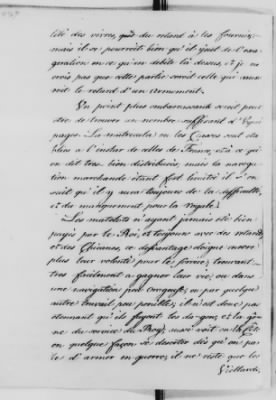 lité des vivres, que du retard à les fournir;
mais il se pourroit bien qu'il y eut de l'exa-
gération en ce qu'on debite là dessus, et je ne
crois pas que cette partie soit celle qui aura
le retard d'un armement.
Un point plus embarrassant seroit peut
être de trouver un nombre suffisant d'Equi-
pages. La matricula ou les Classes sont éta-
blies à l'instar de celles de France, et à ce qu'
on dit très bien distribuées, mais la naviga-
tion marchande étant fort limitée il
sait qu'il y aura toujours de la difficulté,
et du manquement pour la Royale.
Les matelots n'ayant jamais été bien
payés par le Roi, et toujours avec des retards
et des Chicanes, ce desavantage éloigne encore
plus leur volonté pour le service; trouvant
très facilement à gagner leur vie, ou dans
une navigation peu
autre travail peu penible; il n'est donc pas
étonnant qu'ils fuyent les dangers, et la gê-
ne du service du Roy; aussi voit on
en quelque façon se deserter dès qu'on par-
le d'armer en guerre; il ne reste que les
Vieillards,